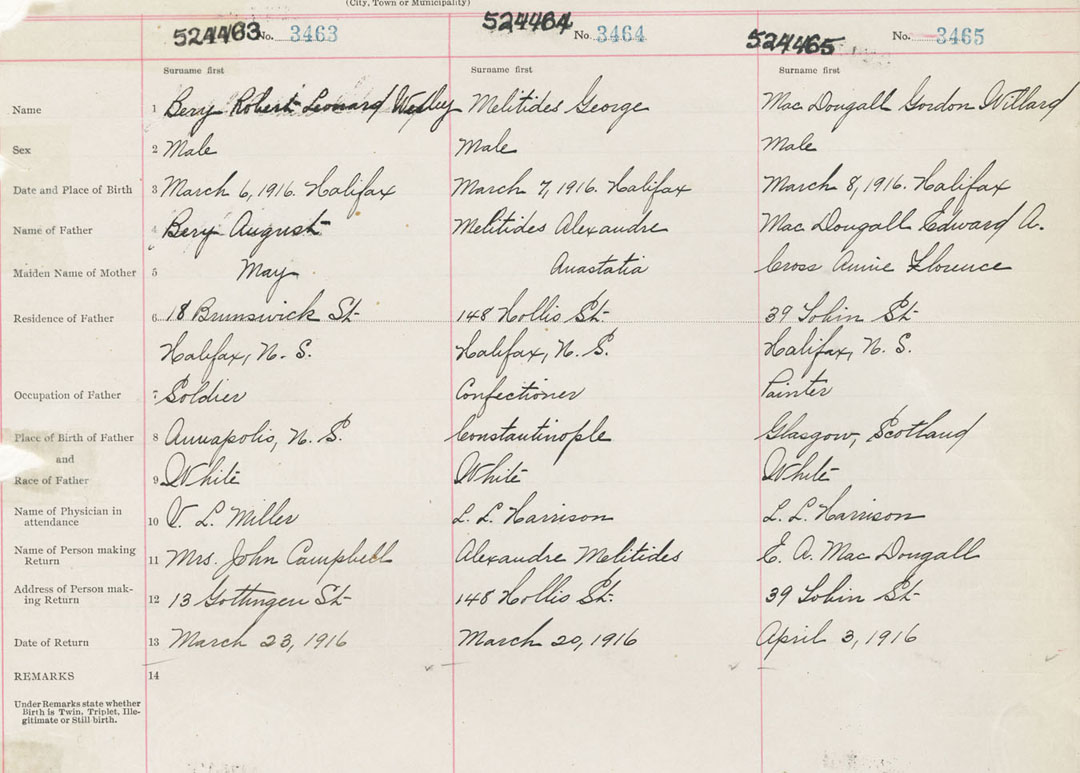 (City, Town or Municipality)
524463 No. 3463 524464 No. 3464 524465 No. 3465
Surname first Surname first Surname first
Name 1 Bery Robert Leonard Wesley Melitides George Mac Dougall Gordon Willard
Sex 2 Male Male Male
Date and Place of Birth 3 March 6, 1916. Halifax March 7, 1916. Halifax March 8, 1916. Halifax
Name of Father 4 Bery August Melitides Alexandre Mac Dougall Edward A.
Maiden Name of Mother 5 May Anastatia Cross Annie Florence
Residence of Father 6 18 Brunswick St. 148 Hollis St. 39 St.
Halifax, N. S. Halifax, N. S. Halifax, N. S.
Occupation of Father 7 Soldier Confectioner Painter
Place of Birth of Father 8 Annapolis, N. S. Constantinople Glasgow, Scotland
and
Race of Father 9 White White White
Name of Physician in
attendance 10 V. L. Miller L. L. Harrison L. L. Harrison
Name of Person making
Return 11 Mrs. John Campbell Alexandre Melitides E. A. Mac Dougall
Address of Person mak-
ing Return 12 13 Gottingen St. 148 Hollis St. 39 St.
Date of Return 13 March 23, 1916 March 20, 1916 April 3, 1916
REMARKS 14
Under Remarks state whether
Birth is Twin, Triplet, Ille-
gitimate or Still-birth.